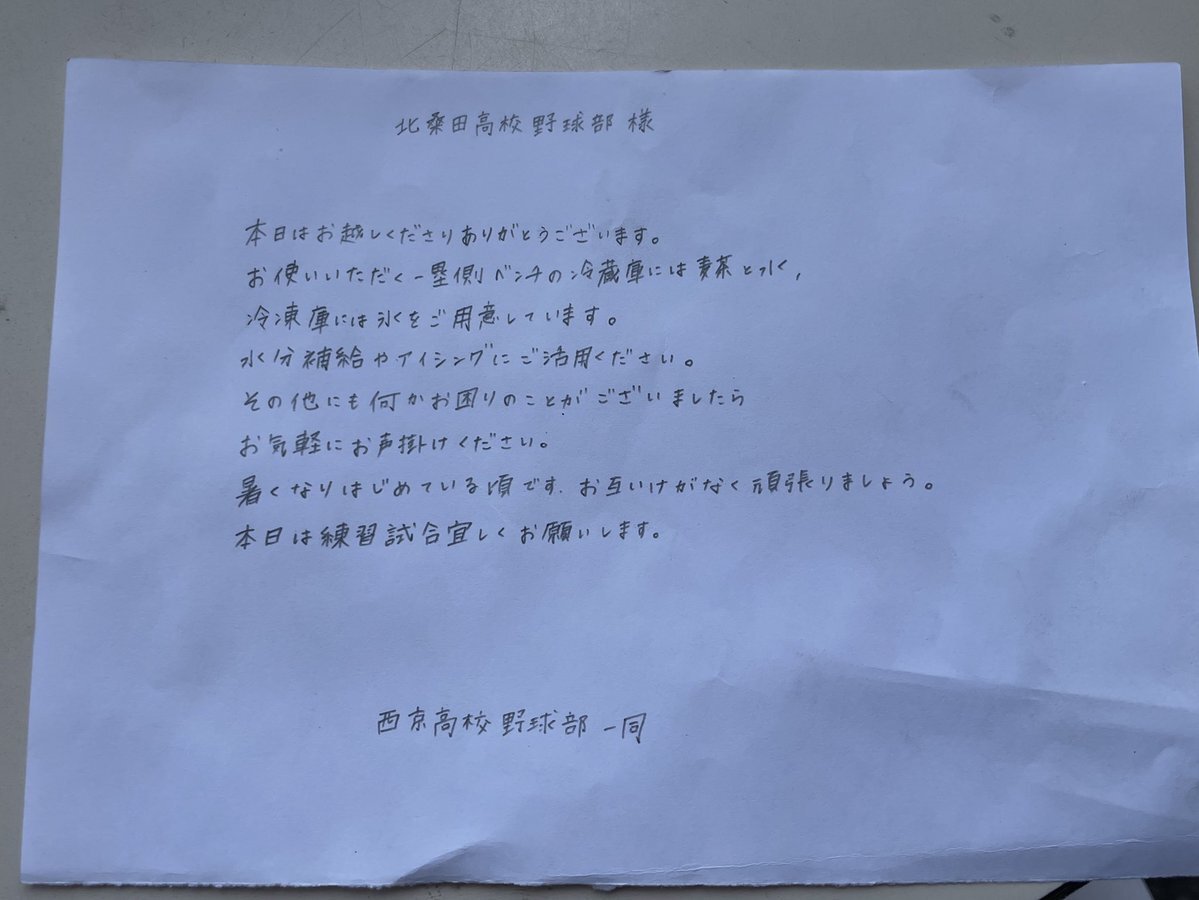 北桑田高校野球部 様
本日はお越しくださりありがとうございます。
お使いいただく一塁側ベンチの冷蔵庫には麦茶と水、
冷凍庫には氷をご用意しています。
水分補給やアイシングにご活用ください。
その他にも何かお困りのことがございましたら
お気軽にお声掛けください。
暑くなりはじめている頃です、お互いけがなく頑張りましょう。
本日は練習試合宜しくお願いします。
西京高校野球部一同